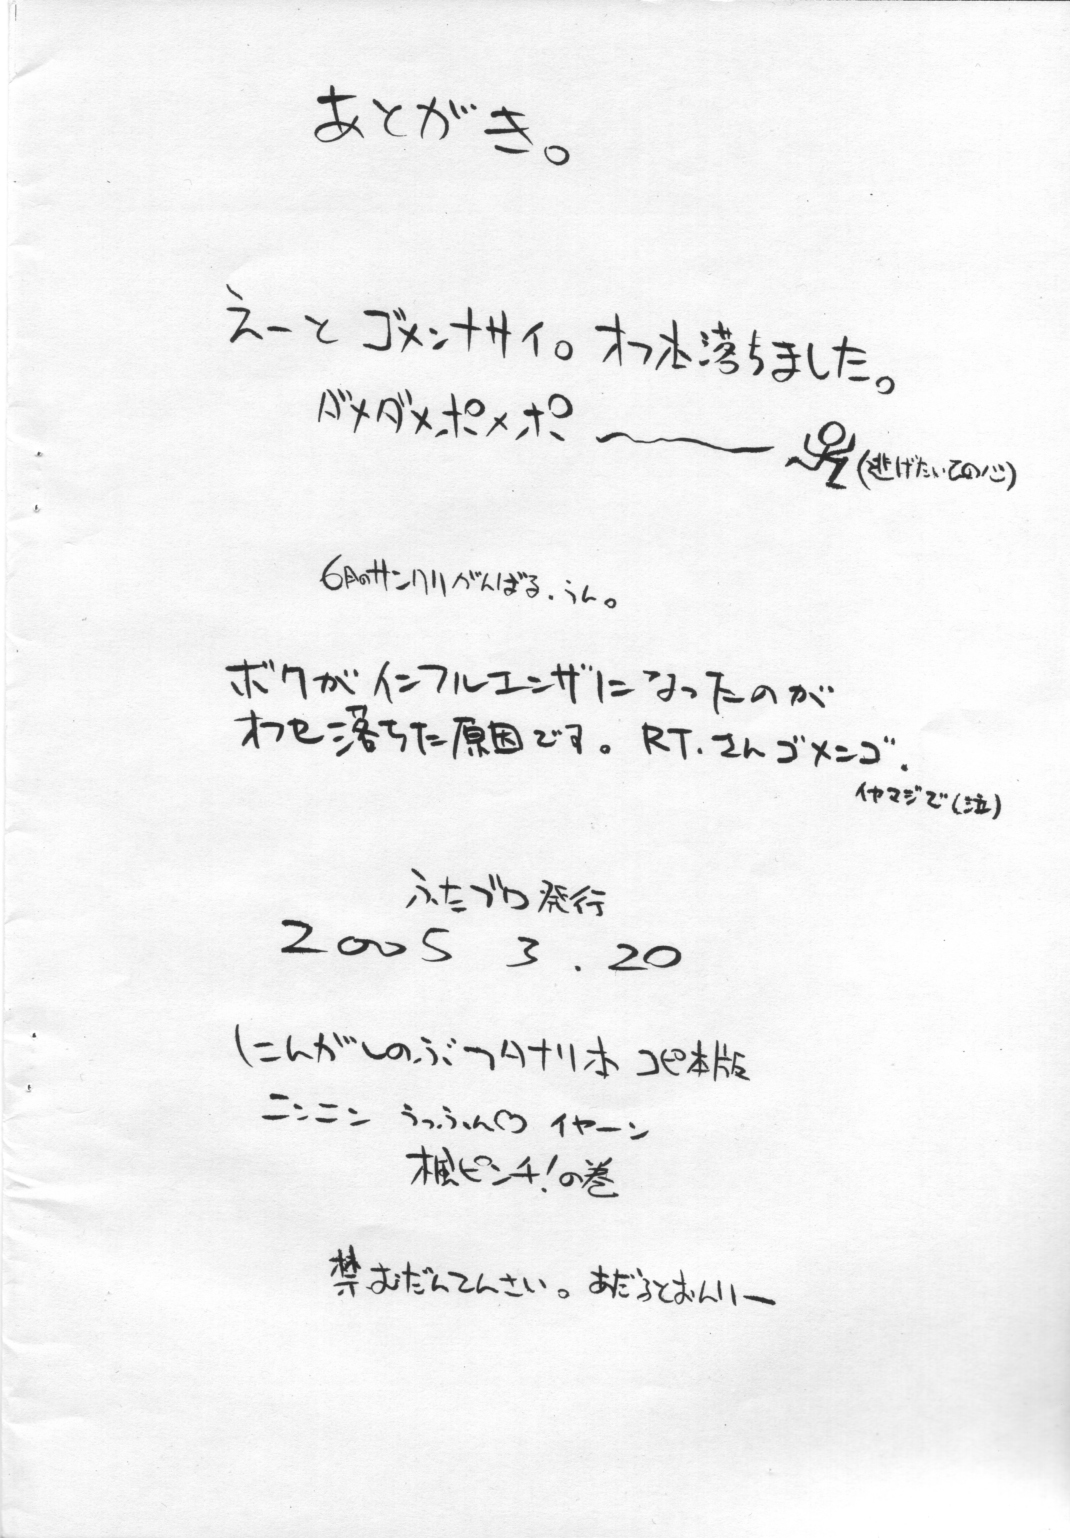 あとがき。
えーと ゴメンナサイ。オフ本落ちました。
ダメダメポメポ
(逃げたいての心)
6月のサンクリがんばる、うん。
ボクがインフルエンザになったのが
オフセ落ちた原因です。RT.さんゴメンゴ.
イヤマジで(泣)
ふたブロ発行
2005 3.20
にんがしのぶフタナリ本 コピ本版
ニンニン うっふん♡ イヤーン
楓ピンチ!の巻
禁むだんてんさい。あだるとおんりー